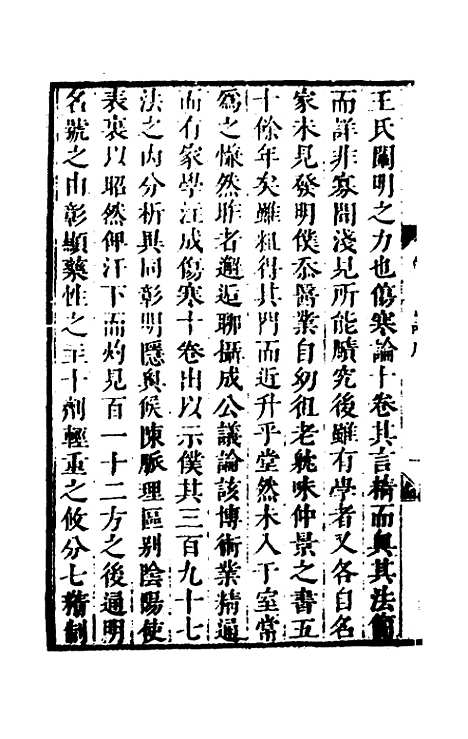 王氏闡明之力也傷寒論十卷其言精而奧其法簡
而詳非寡聞淺見所能賾究後雖有學者又各自名
家未見發明僕忝醫業自幼徂老躭味仲景之書五
十餘年矣雖粗得其門而近升乎堂然未入于室常
爲之慊然昨者邂逅聊攝成公議論該博術業精通
而有家學注成傷寒十卷出以示僕其三百九十七
法之內分析異同彰明隱奧候陳脈理區别陰陽使
表裏以昭然俾汗下而灼見百一十二方之後通明
名號之由彰顯藥性之主十劑輕重之攸分七精制